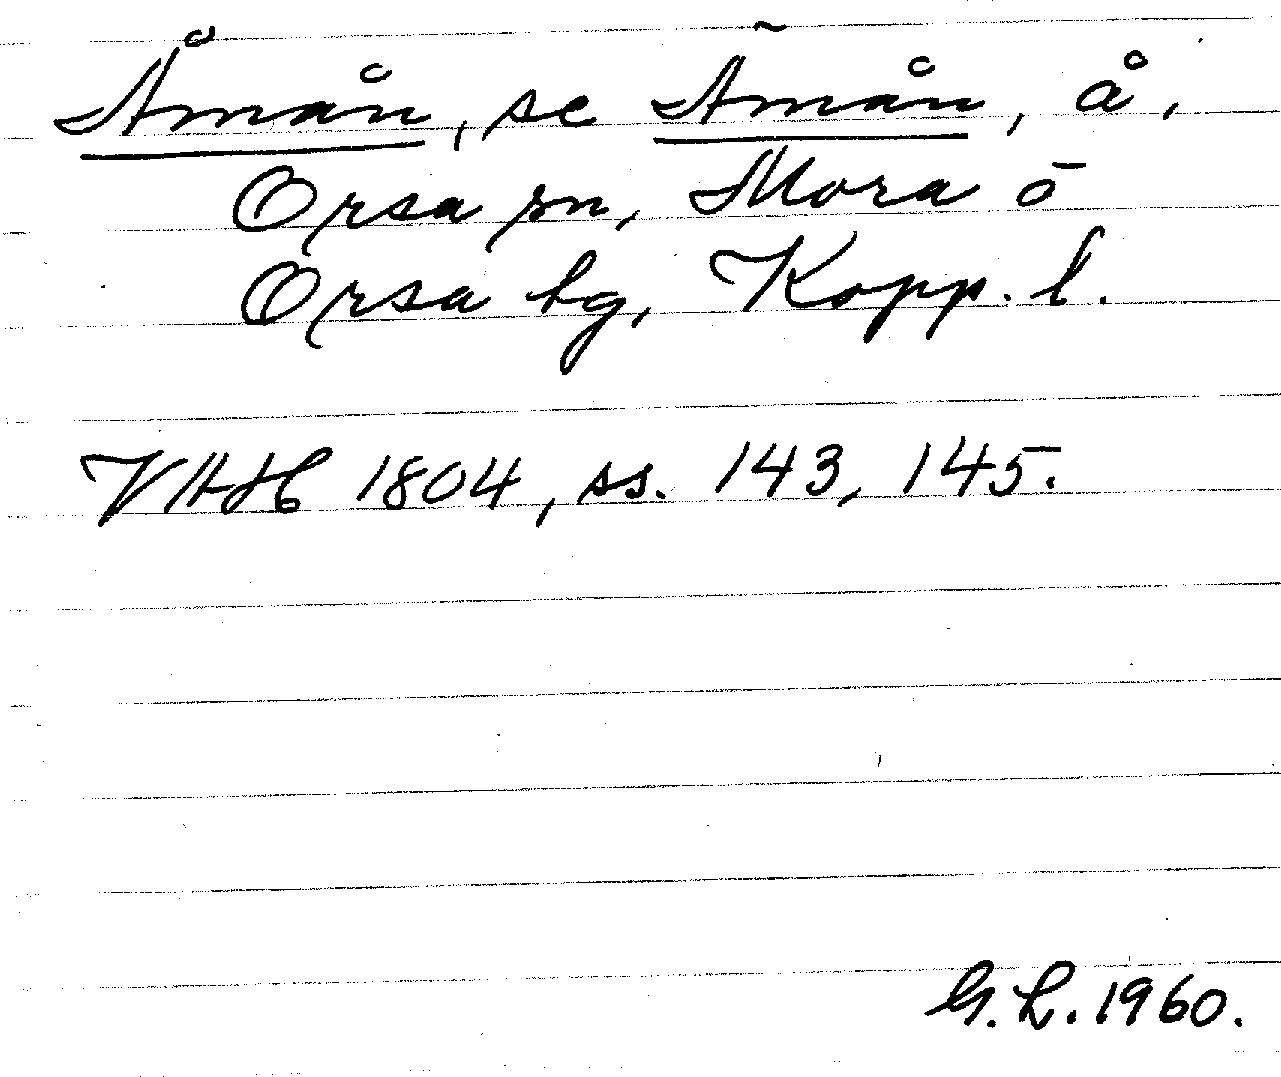 Åmån, se Ämån, å,
Orsa sn, Mora o
Orsa tg, Kopp. l.
VHAH 1804, ss. 143, 145.
G.L. 1960.